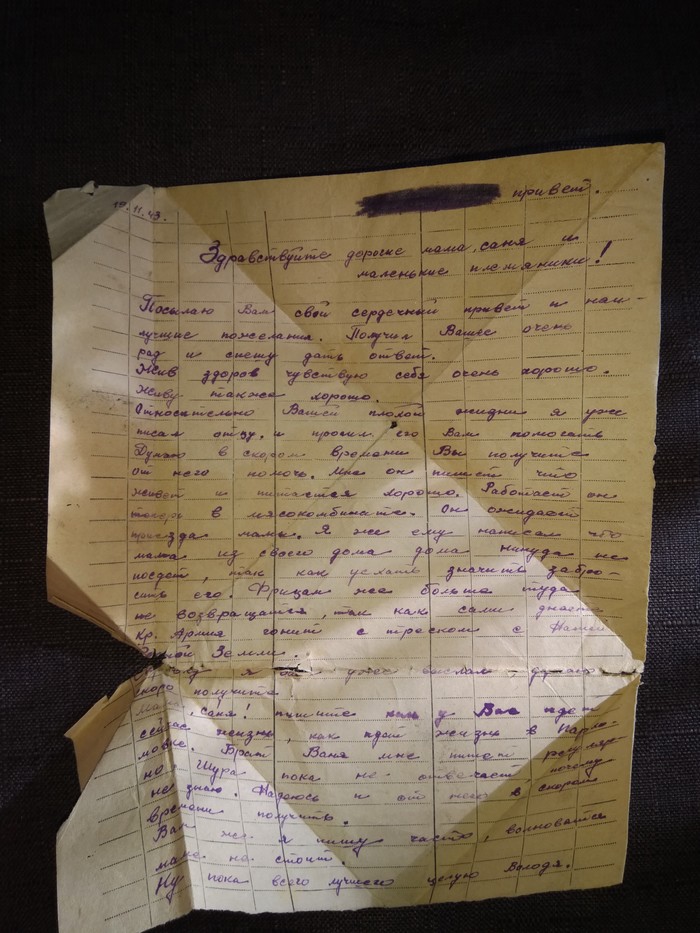 привет.
19.11.43.
Здравствуйте дорогие мама, саня и
маленькие племяники!
Посылаю Вам свой сердечный привет и наи-
лучшие пожелания. Получил Вашее очень
рад и спешу дать ответ.
Жив здоров чувствую себя очень хорошо.
Живу также хорошо.
Относительно Вашей плохой жизни я уже
писал отцу, и просил его Вам помогать
Думаю в скором времени Вы получите
от него помочь. Мне он пишет что
живет и питается хорошо. Работает он
теперь в мясокомбинате. Он ожидает
приезда мамы. Я же ему написал что
мама из своего дома дома никуда не
поедет, так как уехать значить забро-
сить его. Фрицам же больше туда
не возвращатся, так как сами знаете
Кр. Армия гонит с треском с Нашей
Земли.
я уже выслал, думаю
скоро получите
Мама, саня! пишите как у Вас идет
сейчас жизнь, как идет жизнь в Варла-
мовке. Брат Ваня мне пишет регуляр-
но. Шура пока не отвечает, почему
не знаю. Надеюсь и от него в скором
времени получить.
Вам же я пишу часто, волноватся
маме не стоит.
Ну пока всего лучшего целую Володя.